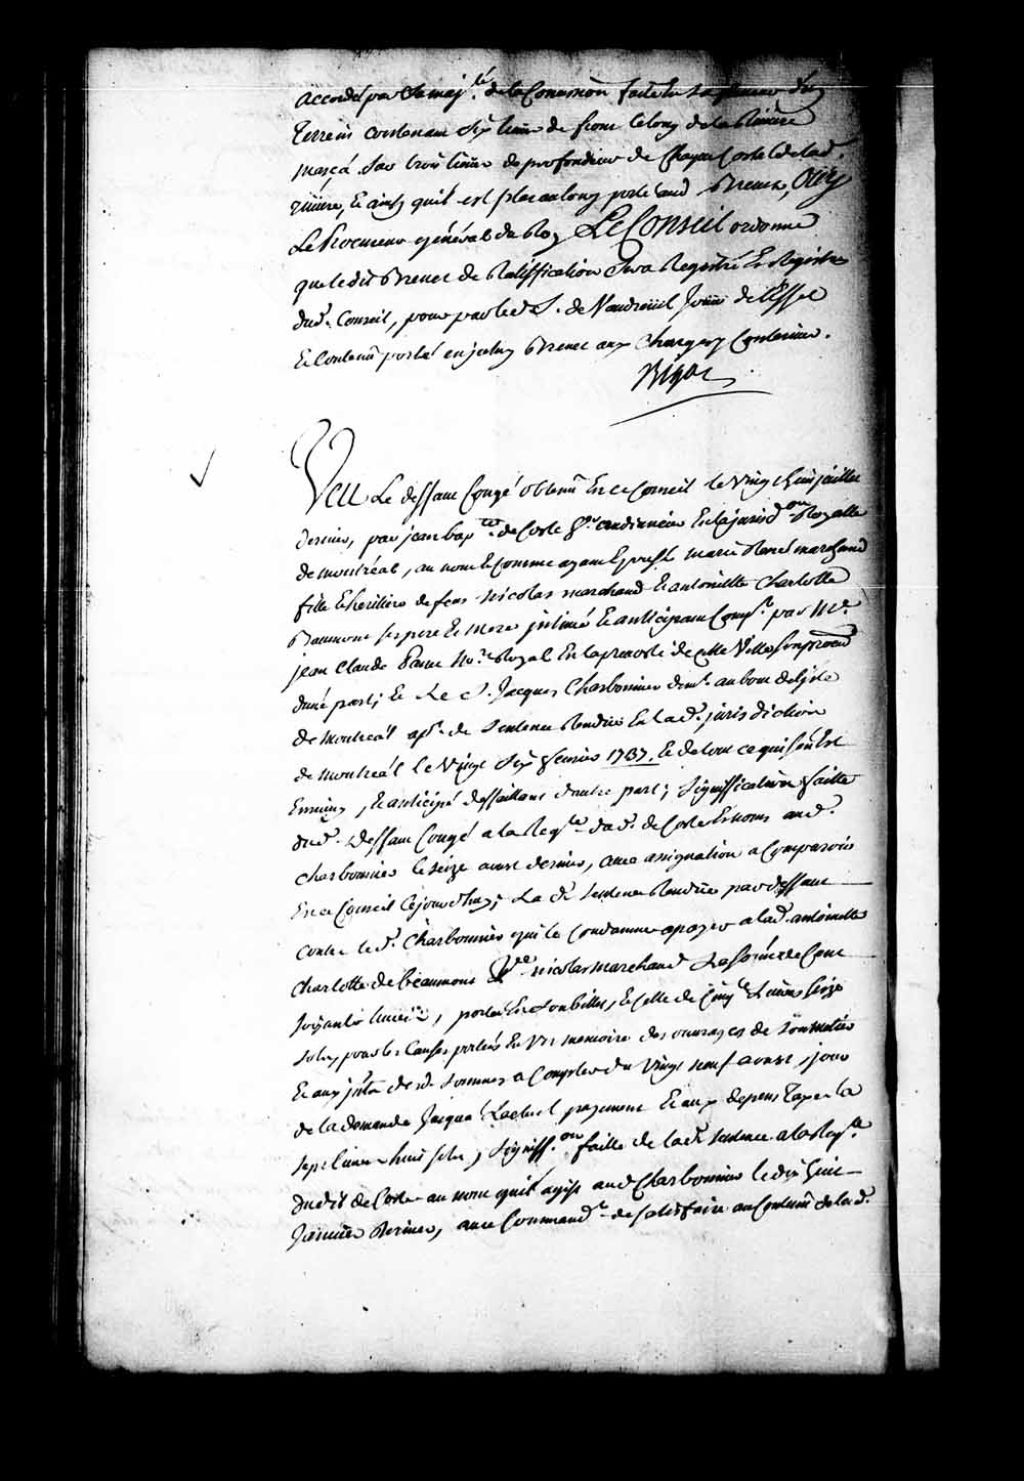 accordé par Sa maj.té de la Concession faite en sa faveur du
Terrein contenant Six lieües de front le long de la Riviere
masca sur trois lieües de profondeur de chaque costé de lad.
riviere, et ainsy quil est plus au long porté aud Brevet, Oüy
Le Procureur général du Roy Le Conseil ordonne
que le dit Brevet de Ratiffication sera Registré Es Registres
dud. Conseil, pour par led. S. de Vaudreüil Joüir de l'Effet
et Contenu porté en jceluy Brevet aux Charges y Contenües.
Bigot
Veu Le deffaut Congé obtenu En ce Conseil le vingt huit juillet
dernier, par jean bap.te de Coste h.er audiancier En la jurisd.on Royalle
de montréal, au nom et comme ayant Epousé marie marchand
fille et heritiere de feus Nicolas marchand et antoinette charlotte
Beaumont ses pere et mere jntimé et anticipant Comp.t par M.e
jean Claude Panet No.re Royal En la prevosté de cette Ville
d'une part; et Le S. Jacques Charbonnier dem.t au bout de l'jsle
de Montreal ap.t de Sentence Rendüe En lad. jurisdiction
de montréal le Vingt Six fevrier 1737. et de tout ce qui s'en Est
Ensuivy, et anticipé deffaillant d'autre part; Signiffication faitte
dud. deffaut Congé a la Req.te dud. de Coste Es noms aud.
charbonnier le seize aoust dernier, avec assignation a Comparoir
En ce Conseil Cejourdhuy; La d. Sentence Rendüe par deffaut
contre led. Charbonnier qui le Condamne a payer a lad. antoinette
charlotte de beaumont V.ve nicolas marchand La somme de Cent
soixante livres, portée En son billet, et celle de Cinq livres seize
sols, pour les Causes portées En un memoire des ouvrages de son métier
et aux jnt. desd. sommes a Compter du Vingt neuf aoust, jour
de la demande jusqu'a l'actuel payement et aux depens Taxés a
sept livres huit sols; Signiff.on faitte de lad. sentence a la Req.te
dudit de Coste au nom quil agist aud Charbonnier le dix huit
janvier dernier, avec Command.t de satisfaire au Contenu de lad.